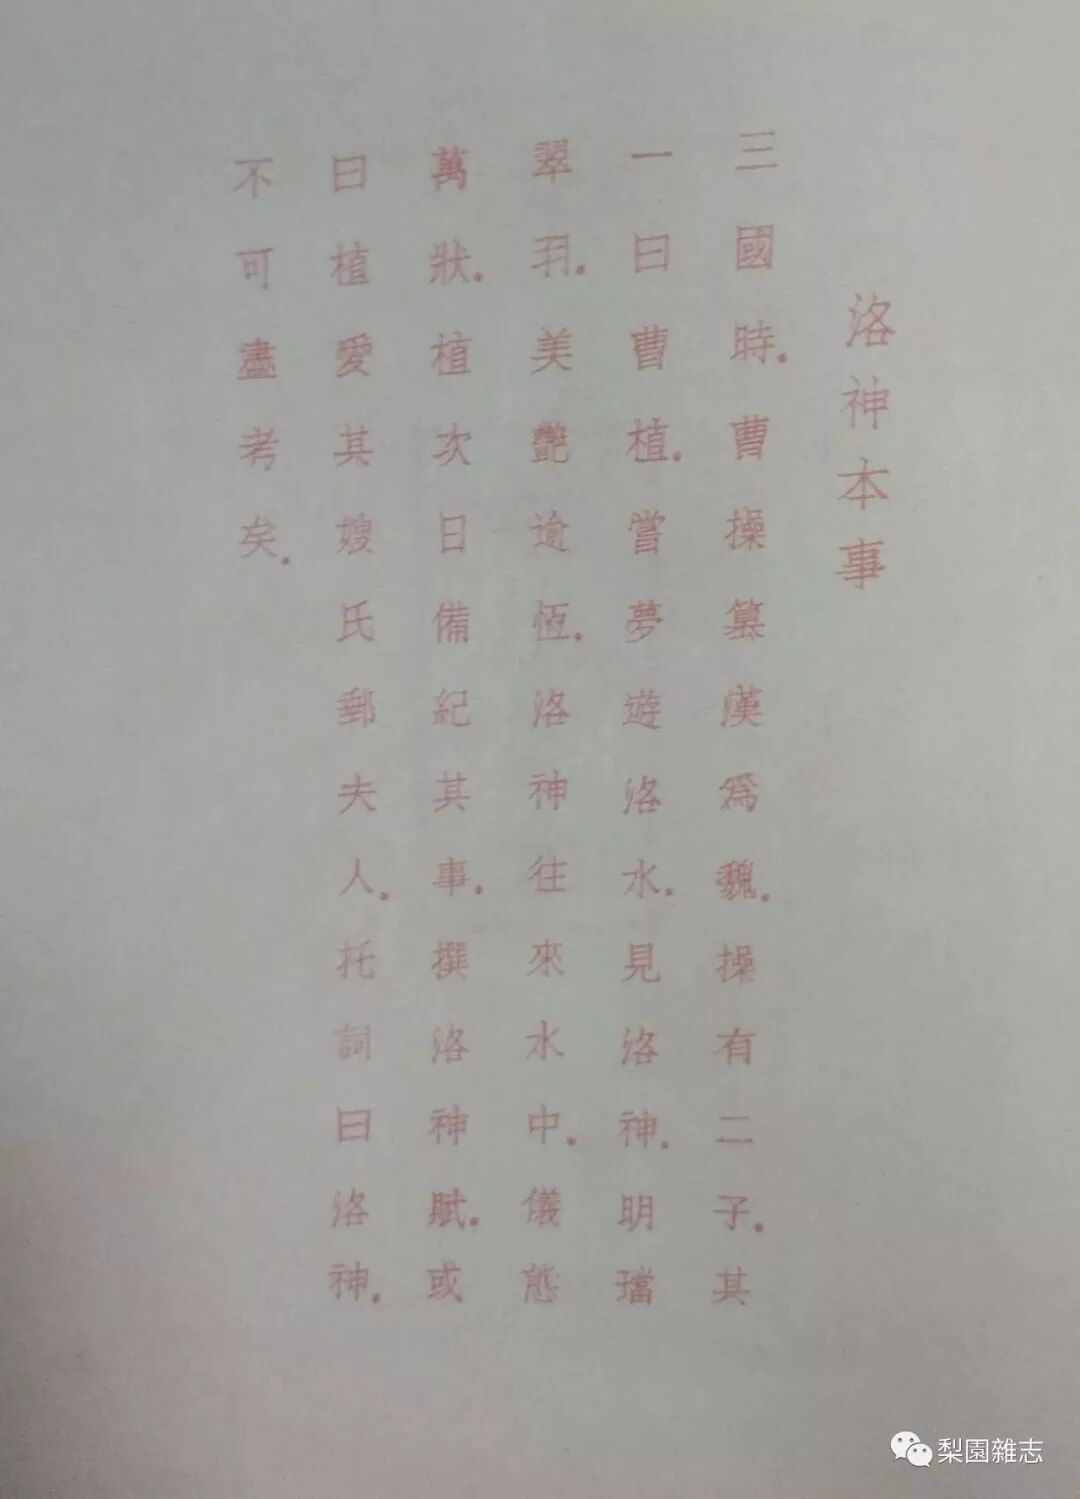 洛神本事
三國時.曹操篡漢爲魏.操有二子.其
一曰曹植.嘗夢遊洛水.見洛神.明璫
翠羽.美艷逾恆.洛神往來水中.儀態
萬狀.植次日備紀其事.撰洛神賦.或
曰植愛其嫂氏郵夫人.托詞曰洛神.
不可盡考矣.
梨園雜志